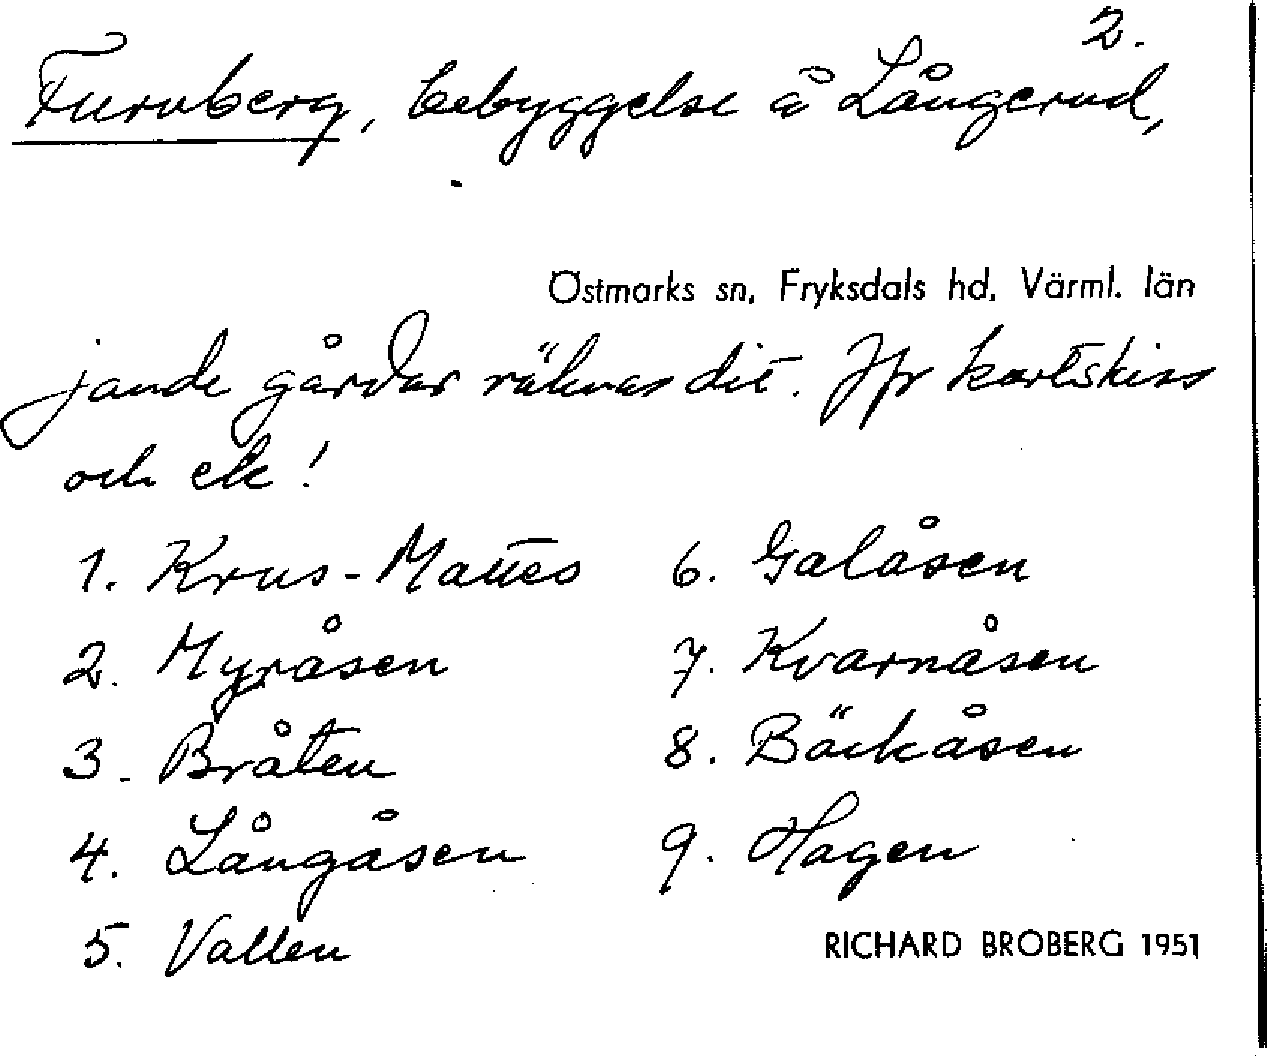 2.
Furuberg, bebyggelse å Långerud,
Östmarks sn, Fryksdals hd, Värml. län
jande gårdar räknas dit. Jfr kartskiss
och ek!
1. Krus-Mattes
6. Galåsen
2. Myråsen
7. Kvarnåsen
3. Bråten
8. Bäckåsen
4. Långåsen
9. Hagen
5. Vallen
RICHARD BROBERG 1951